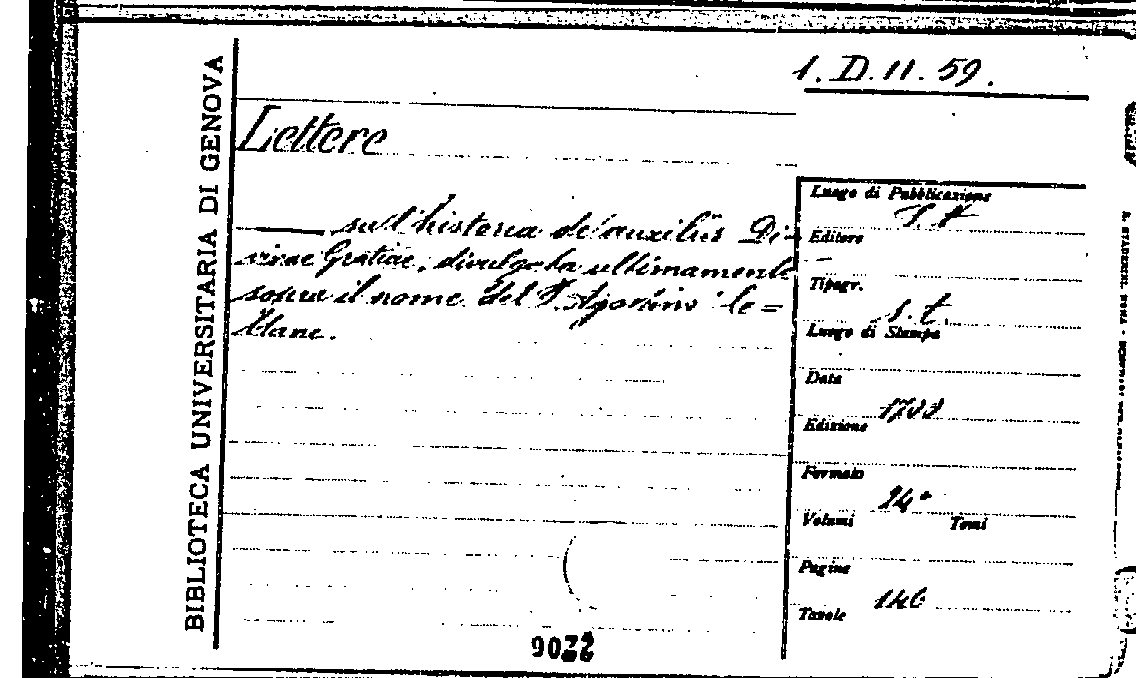 1. D. 11. 59.
BIBLIOTECA UNIVERSITARIA DI GENOVA
Lettere
sull'historia de auxiliis Di-
vinae Gratiae, divulgata ultimamente
sotto il nome del P. Agostino le=
Blanc.
Luogo di Pubblicazione
S. N
Editore
Tipogr.
S. t.
Luogo di Stampa
Data
Edizione
Formato
24°
Volumi Tomi
Pagine
146
Tavole